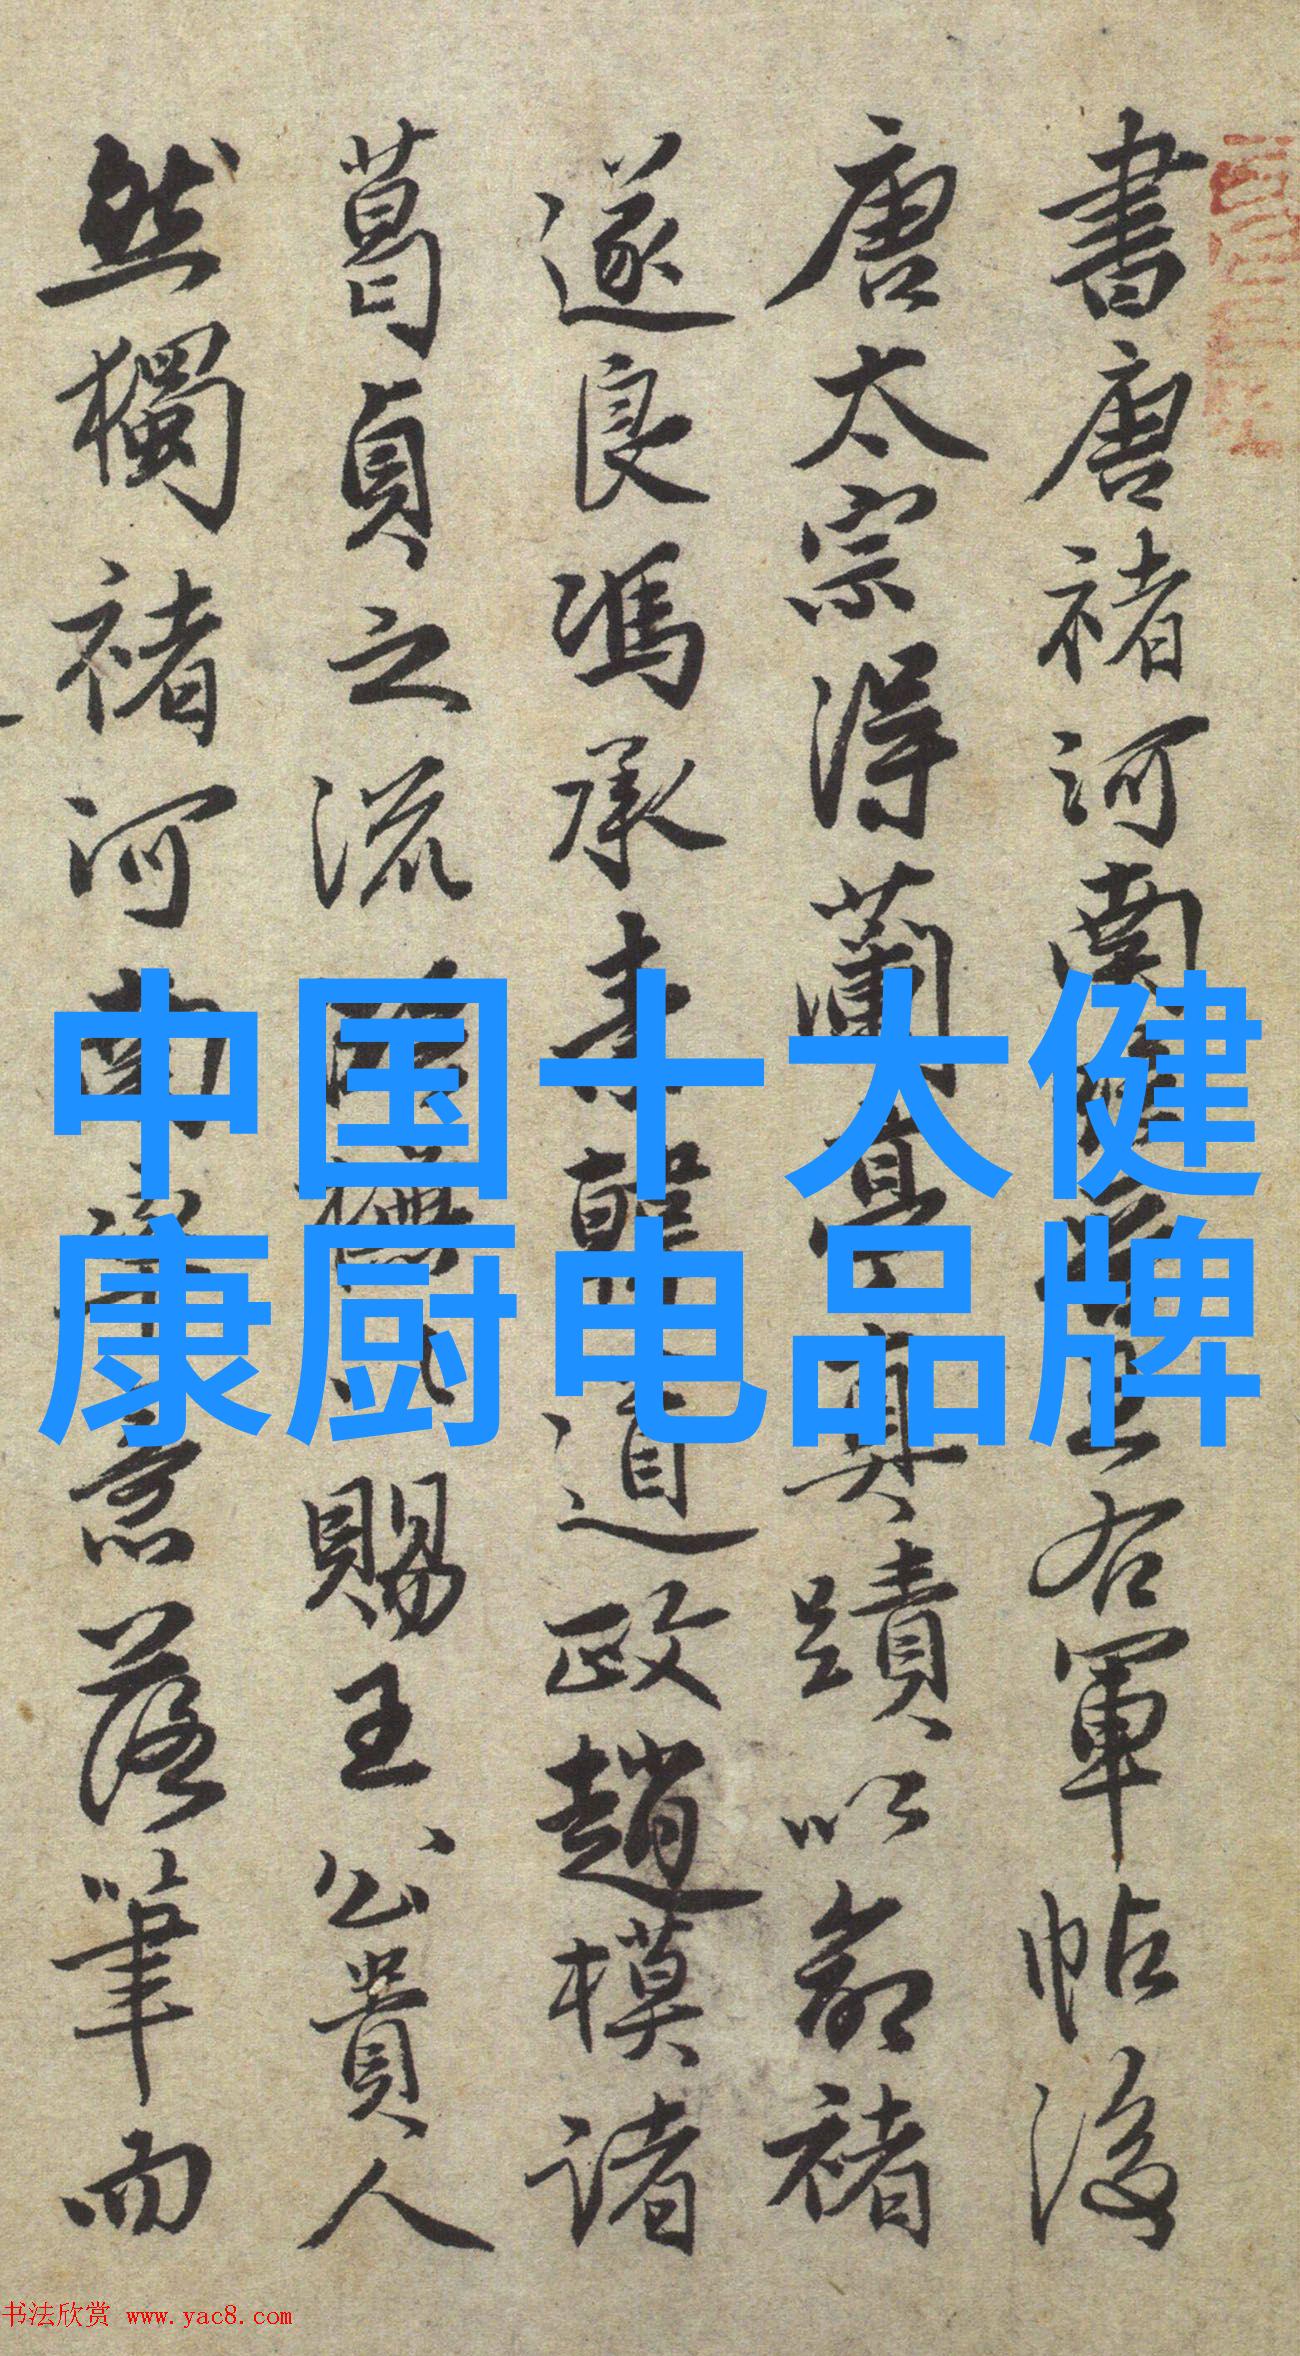 中国十大健
康厨电品牌
書唐褚河南王右軍帖後
唐太宗得蘭亭真蹟以命褚
遂良馮承素韓道政趙模諸
葛貞之流賜王公貴人
然獨褚河南意落筆而
书法欣赏 www.yac8.com